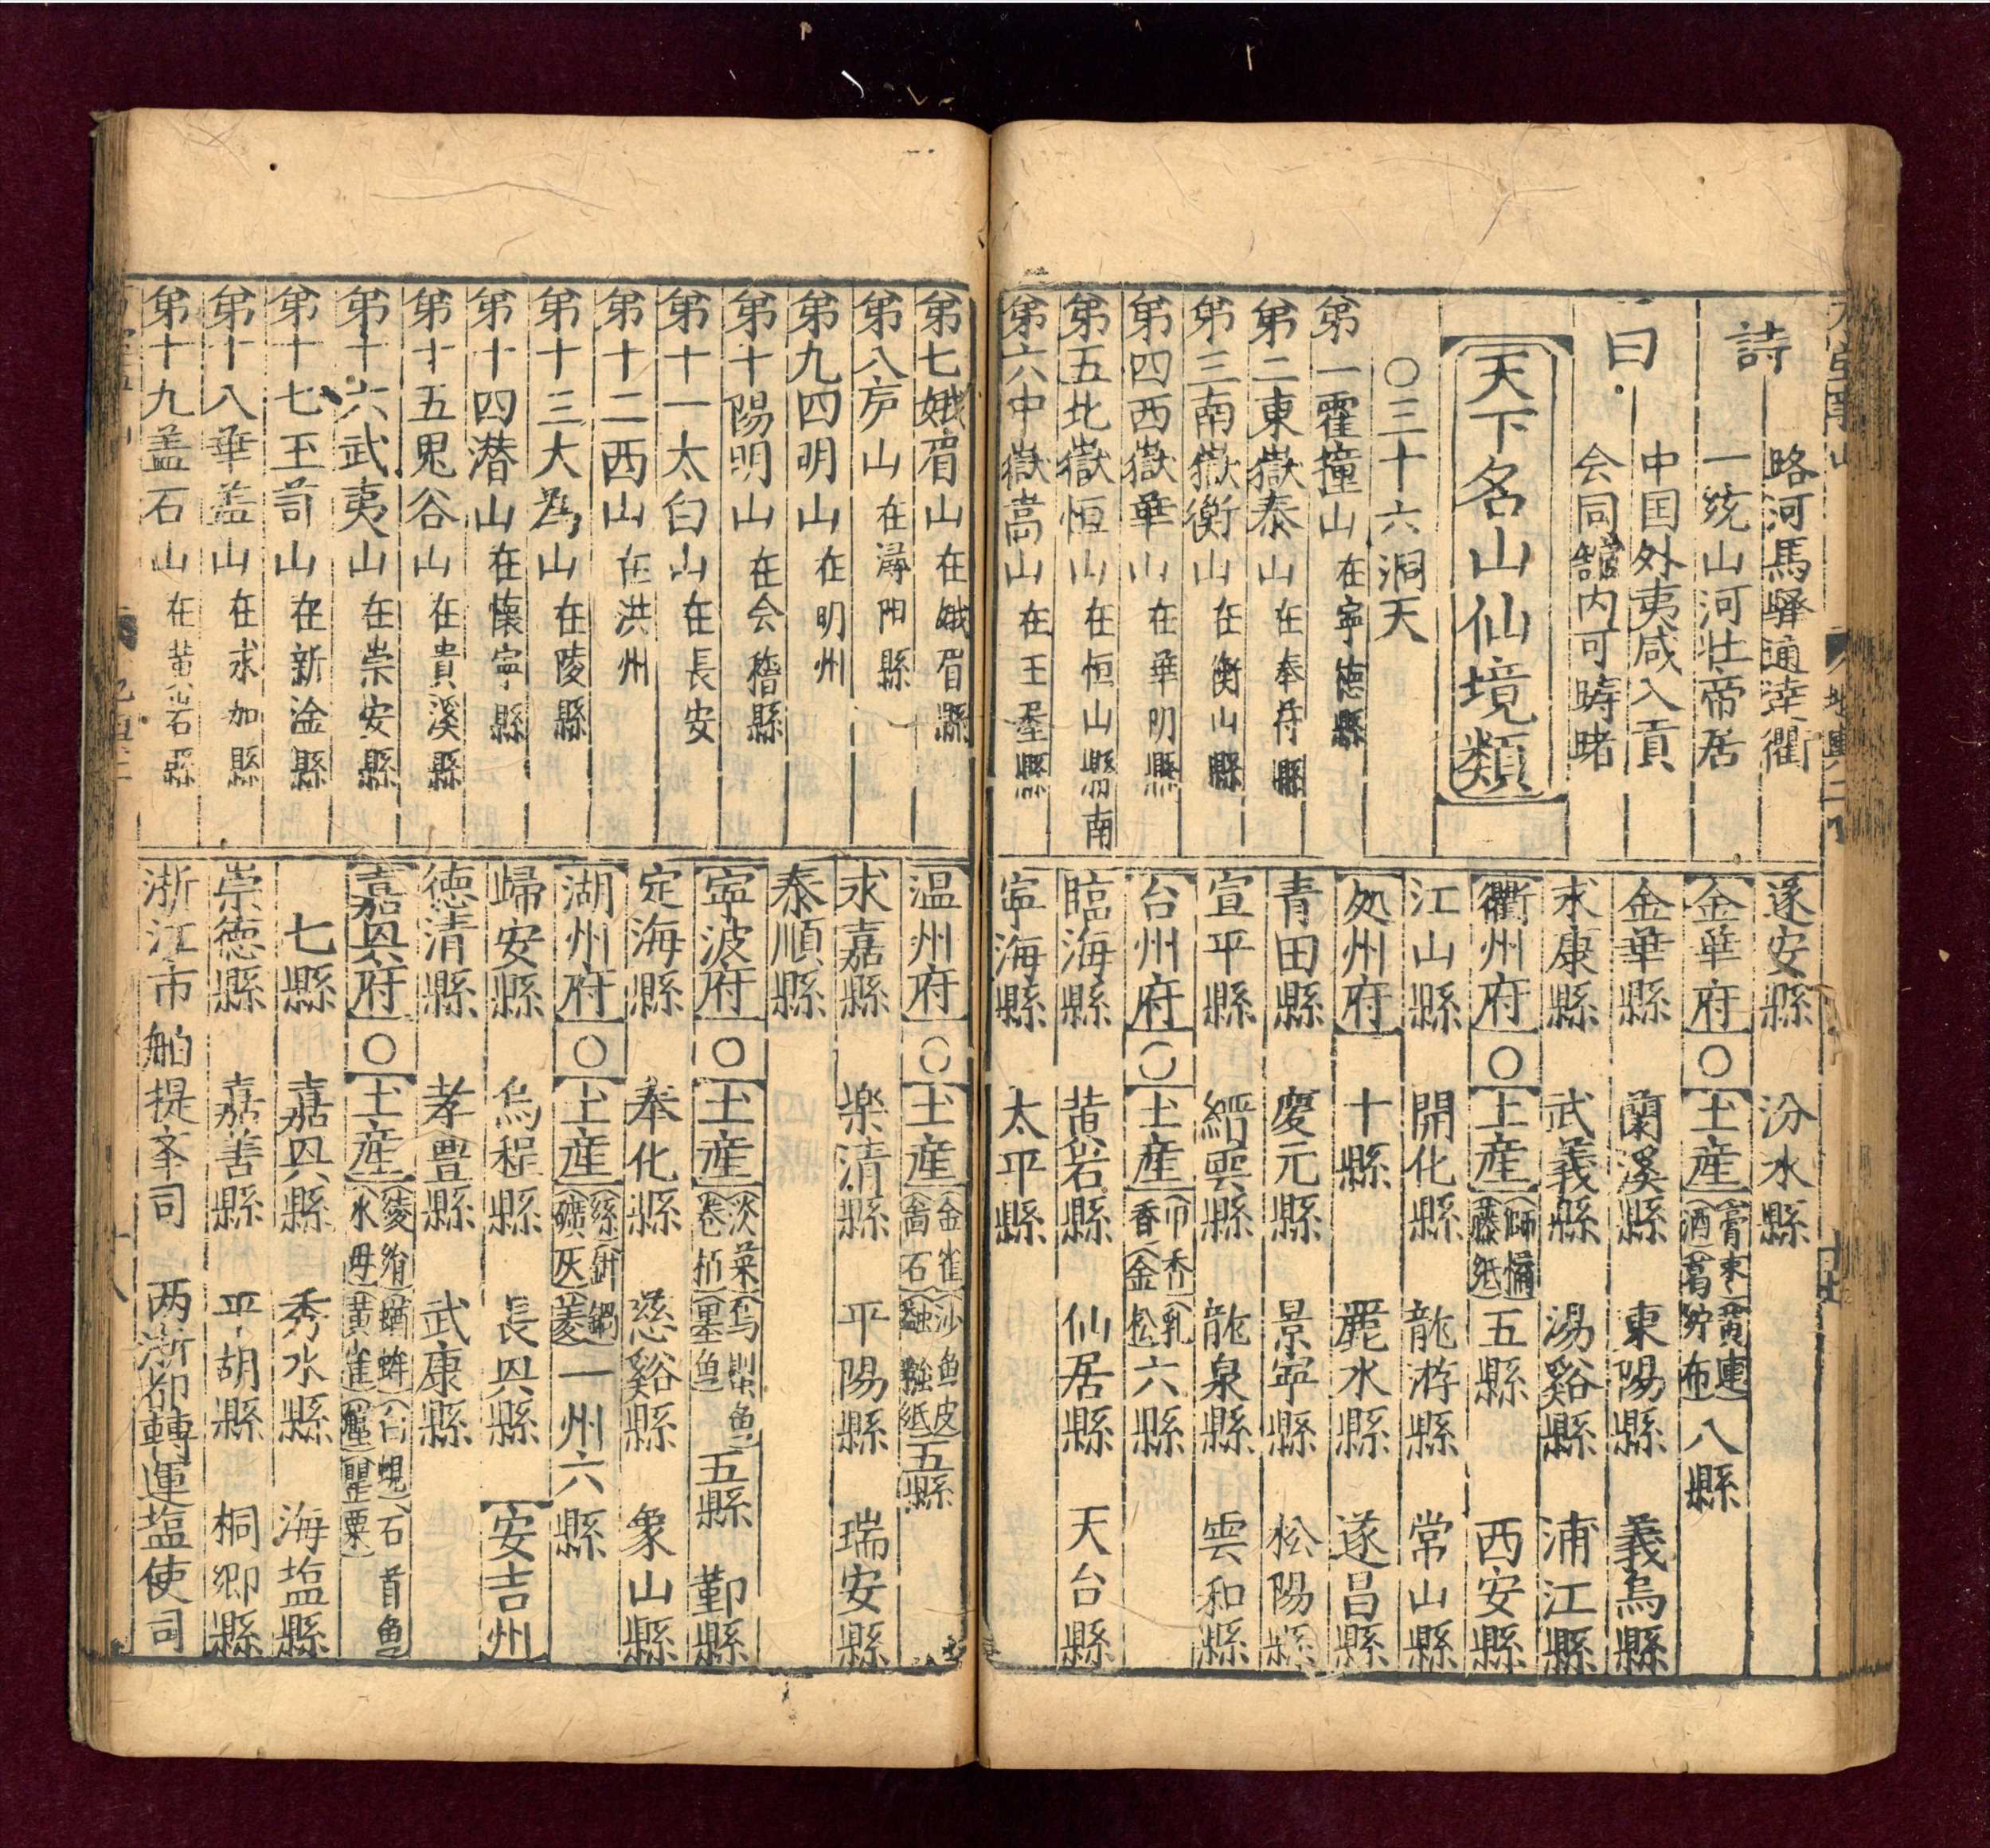 詩
略河馬驛通逹衢
一统山河壮帝居
曰
中国外夷咸入貢
会同舘内可時睹
天下名山仙境類
〇三十六洞天
第一霍撞山在寧德縣
第二東嶽泰山在奉符縣
第三南嶽衡山在衡山縣
第四西嶽華山在華明縣
第五北嶽恒山在恒山縣南
第六中嶽嵩山在王屋縣
遂安縣 汾水縣
金華府〇土産 八縣
金華縣 蘭溪縣 東陽縣 義烏縣
永康縣 武義縣 湯谿縣 浦江縣
衢州府〇土産 藤紙 五縣 西安縣
江山縣 開化縣 龍游縣 常山縣
処州府 十縣 麗水縣 遂昌縣
青田縣 慶元縣 景寧縣 松陽縣
宣平縣 縉雲縣 龍泉縣 雲和縣
台州府〇土産 金松 六縣
臨海縣 黄岩縣 仙居縣 天台縣
寧海縣 太平縣
第七娥眉山在娥眉縣
第八庐山在潯阳縣
第九四明山在明州
第十陽明山在会稽縣
第十一太白山在長安
第十二西山在洪州
第十三大為山在陵縣
第十四潜山在懷寧縣
第十五鬼谷山在貴溪縣
第十六武夷山在崇安縣
第十七玉笥山在新淦縣
第十八華盖山在永加縣
第十九盖石山在黄岩縣
温州府〇土産 金雀 石 沙魚皮 蠲紙 五縣
永嘉縣 樂清縣 平陽縣 瑞安縣
泰順縣
寧波府〇土産 淡菜 墨魚 五縣 鄞縣
定海縣 奉化縣 慈谿縣 象山縣
湖州府〇土産 礦灰 菱 一州六縣
歸安縣 烏程縣 長兴縣 安吉州
德清縣 孝豊縣 武康縣
嘉兴府〇土産 水母 黄雀 白蜆 石首魚
七縣 嘉兴縣 秀水縣 海塩縣
崇德縣 嘉善縣 平胡縣 桐鄉縣
浙江市舶提李司 两浙都轉運塩使司
十八